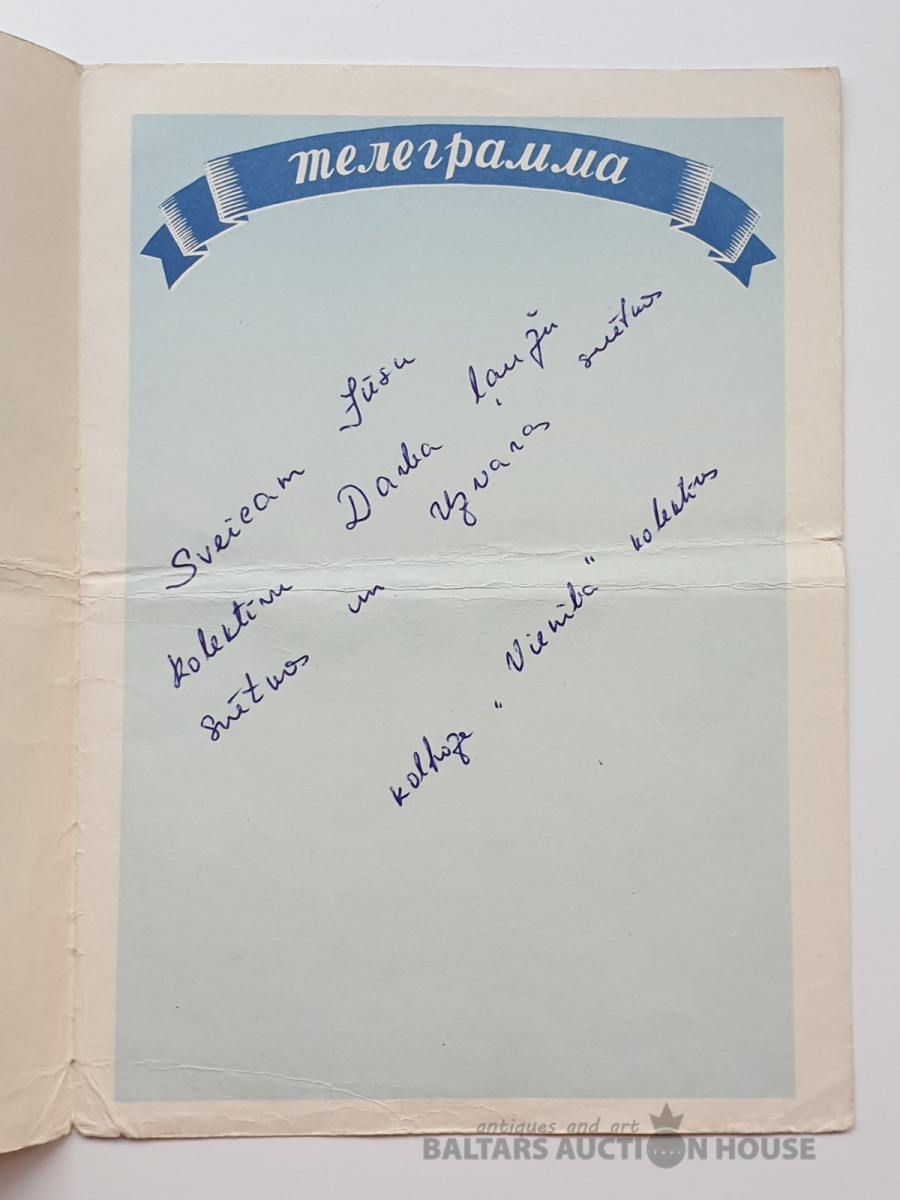 телеграмма
Sveicam Jūsu
kolektīvu Darba ļaužu svētkos
svētkos un Uzvaras
kolhoze „Vienība" kolektīvs
antiques and art
BALTARS AUCTION HOUSE